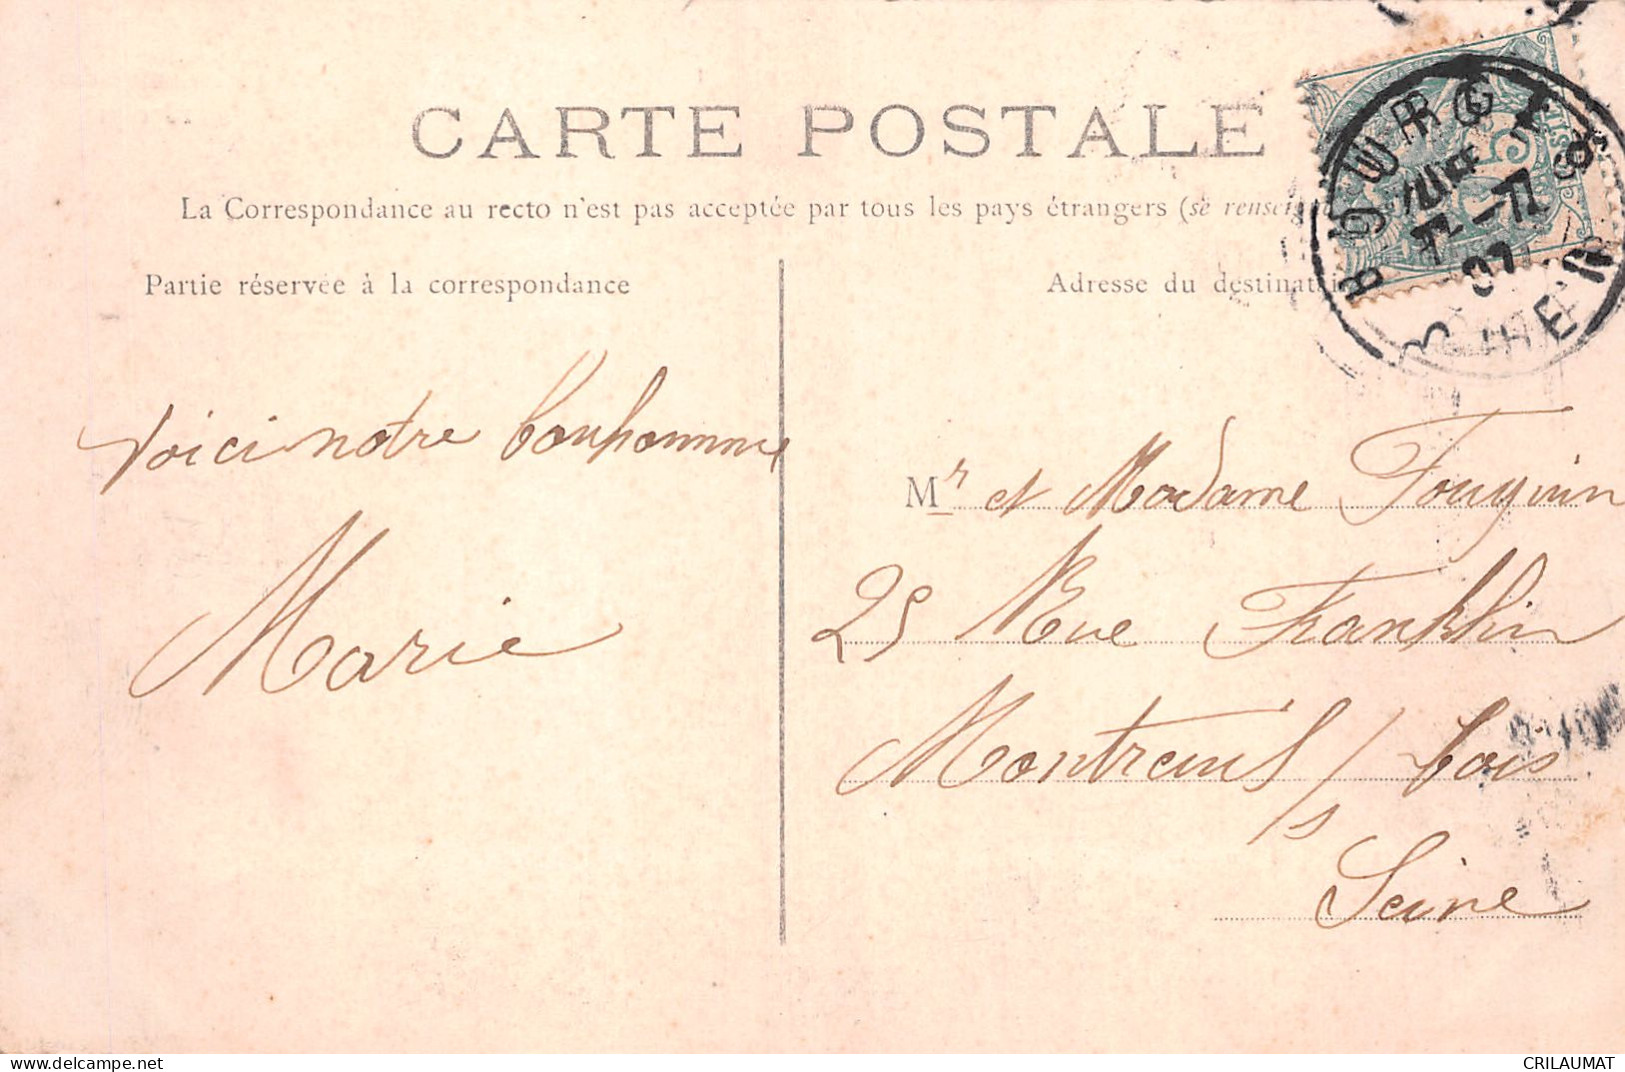 CARTE POSTALE
La Correspondance au recto n'est pas acceptée par tous les pays étrangers (se renseig
Partie réservée à la correspondance
Adresse du destinatai
BOURGES
CHER
07
5
Voici notre bonhomme
Marie
Mr et Madame Fouguin
25 Rue Franklin
Montreuil s/ bois
Seine
www.delcampe.net
CRILAUMAT